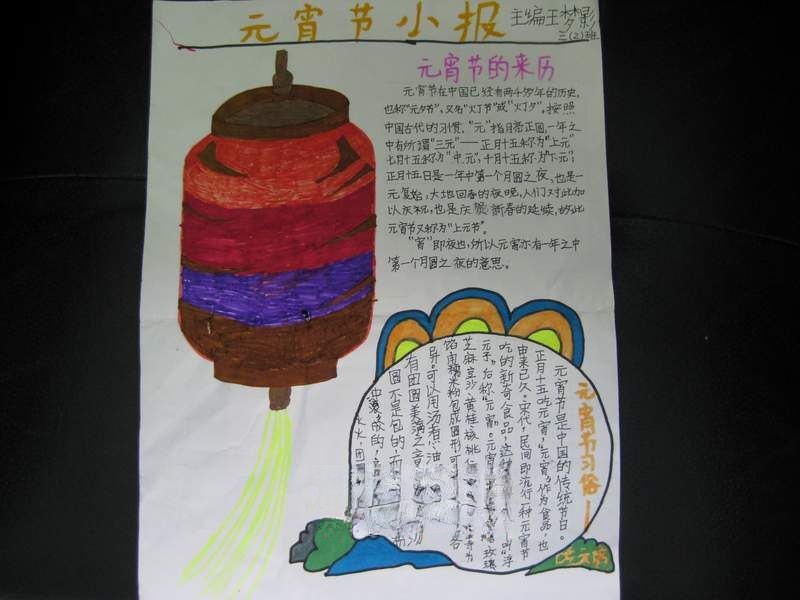 元宵节小报
主编王梦影
三(2)班
元宵节的来历
元宵节在中国已经有两千多年的历史,
也称“元夕节”,又名“灯节”或“灯夕”。按照
中国古代的习惯,“元”指月亮正圆,一年之
中有所谓“三元”——正月十五称为“上元”
七月十五称为“中元”,十月十五称为“下元”;
正月十五日是一年中第一个月圆之夜,也是一
元复始,大地回春的夜晚,人们对此加
以庆祝,也是庆贺新春的延续,故此
元宵节又称为“上元节”。
“宵”即夜也,所以元宵亦有一年之中
第一个月圆之夜的意思。
元宵节习俗——
吃元宵
元宵节是中国的传统节日。
正月十五吃元宵,“元宵”作为食品,也
由来已久。宋代,民间即流行一种元宵节
吃的新奇食品,这种 叫“浮
元子”后称“元宵”。元宵 玫瑰
芝麻豆沙、黄桂、核桃仁 为
馅,用糯米粉包成圆形,可 各
异。可以用汤煮、油
有团圆美满之意
圆不是包的,而 沥
中滚成的,
火大,团